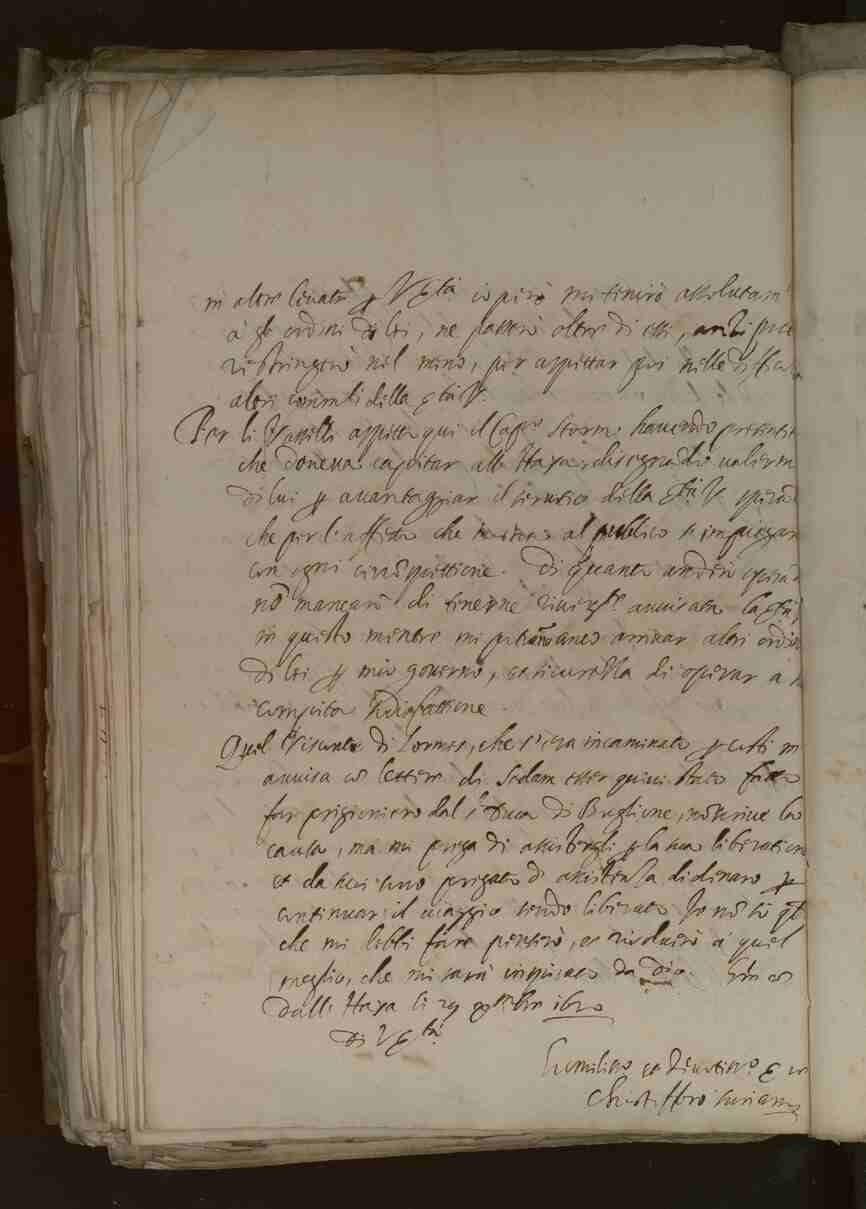 in altre levate per V. Serità io però mi tenirò assolutam
à gli ordini di lei, ne passerò oltre di essi, anzi più
restringerò nel meno, per aspettar poi nelle diffic
altri commdi della Serità V.
Per li Vasselli aspetto qui il Capno Storm havendo presentito
che doveva capitar all'Haya, disegnando valerm
di lui per avantaggiar il servitio della Serità V. sperando
che per l'affetto che mostra al publico s'impiegar
con ogni circonspettione. Di quanto anderò operand
nõ mancarò di tenerne riverte avvisata la Serità
in questo mentre mi potrano anco arrivar altri ordini
di lei per mio governo, et sicurezza di operar a
compita sodisfattione.
Quel Visconte di Lormes, che s'era incaminato per costì m
avvisa co lettere di Sedam esser quivi stato fatto
far prigioniero dal Sr Duca di Buglione, nõ scrive la
causa, mà mi prega di assistergli per la sua liberatione
et da suoi sono pregato di assistenza di dinaro per
continuar il viaggio sendo liberato. Io nõ sò qll
che mi debbi fare penserò, et risolverò à quel
meglio, che mi sarà inspirato da Dio. Gra
Dall'Haya li 29 Xmbre 1620
Di V. Serità
Humilissmo et Devotissmo
Christofforo Suriano